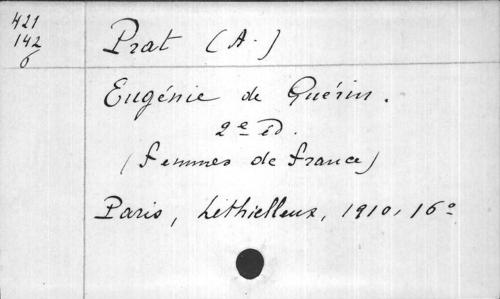 421
142
6
Prat (A.)
Eugénie de Guérin.
2e éd.
(Femmes de France)
Paris, Lethielleux, 1910, 16°